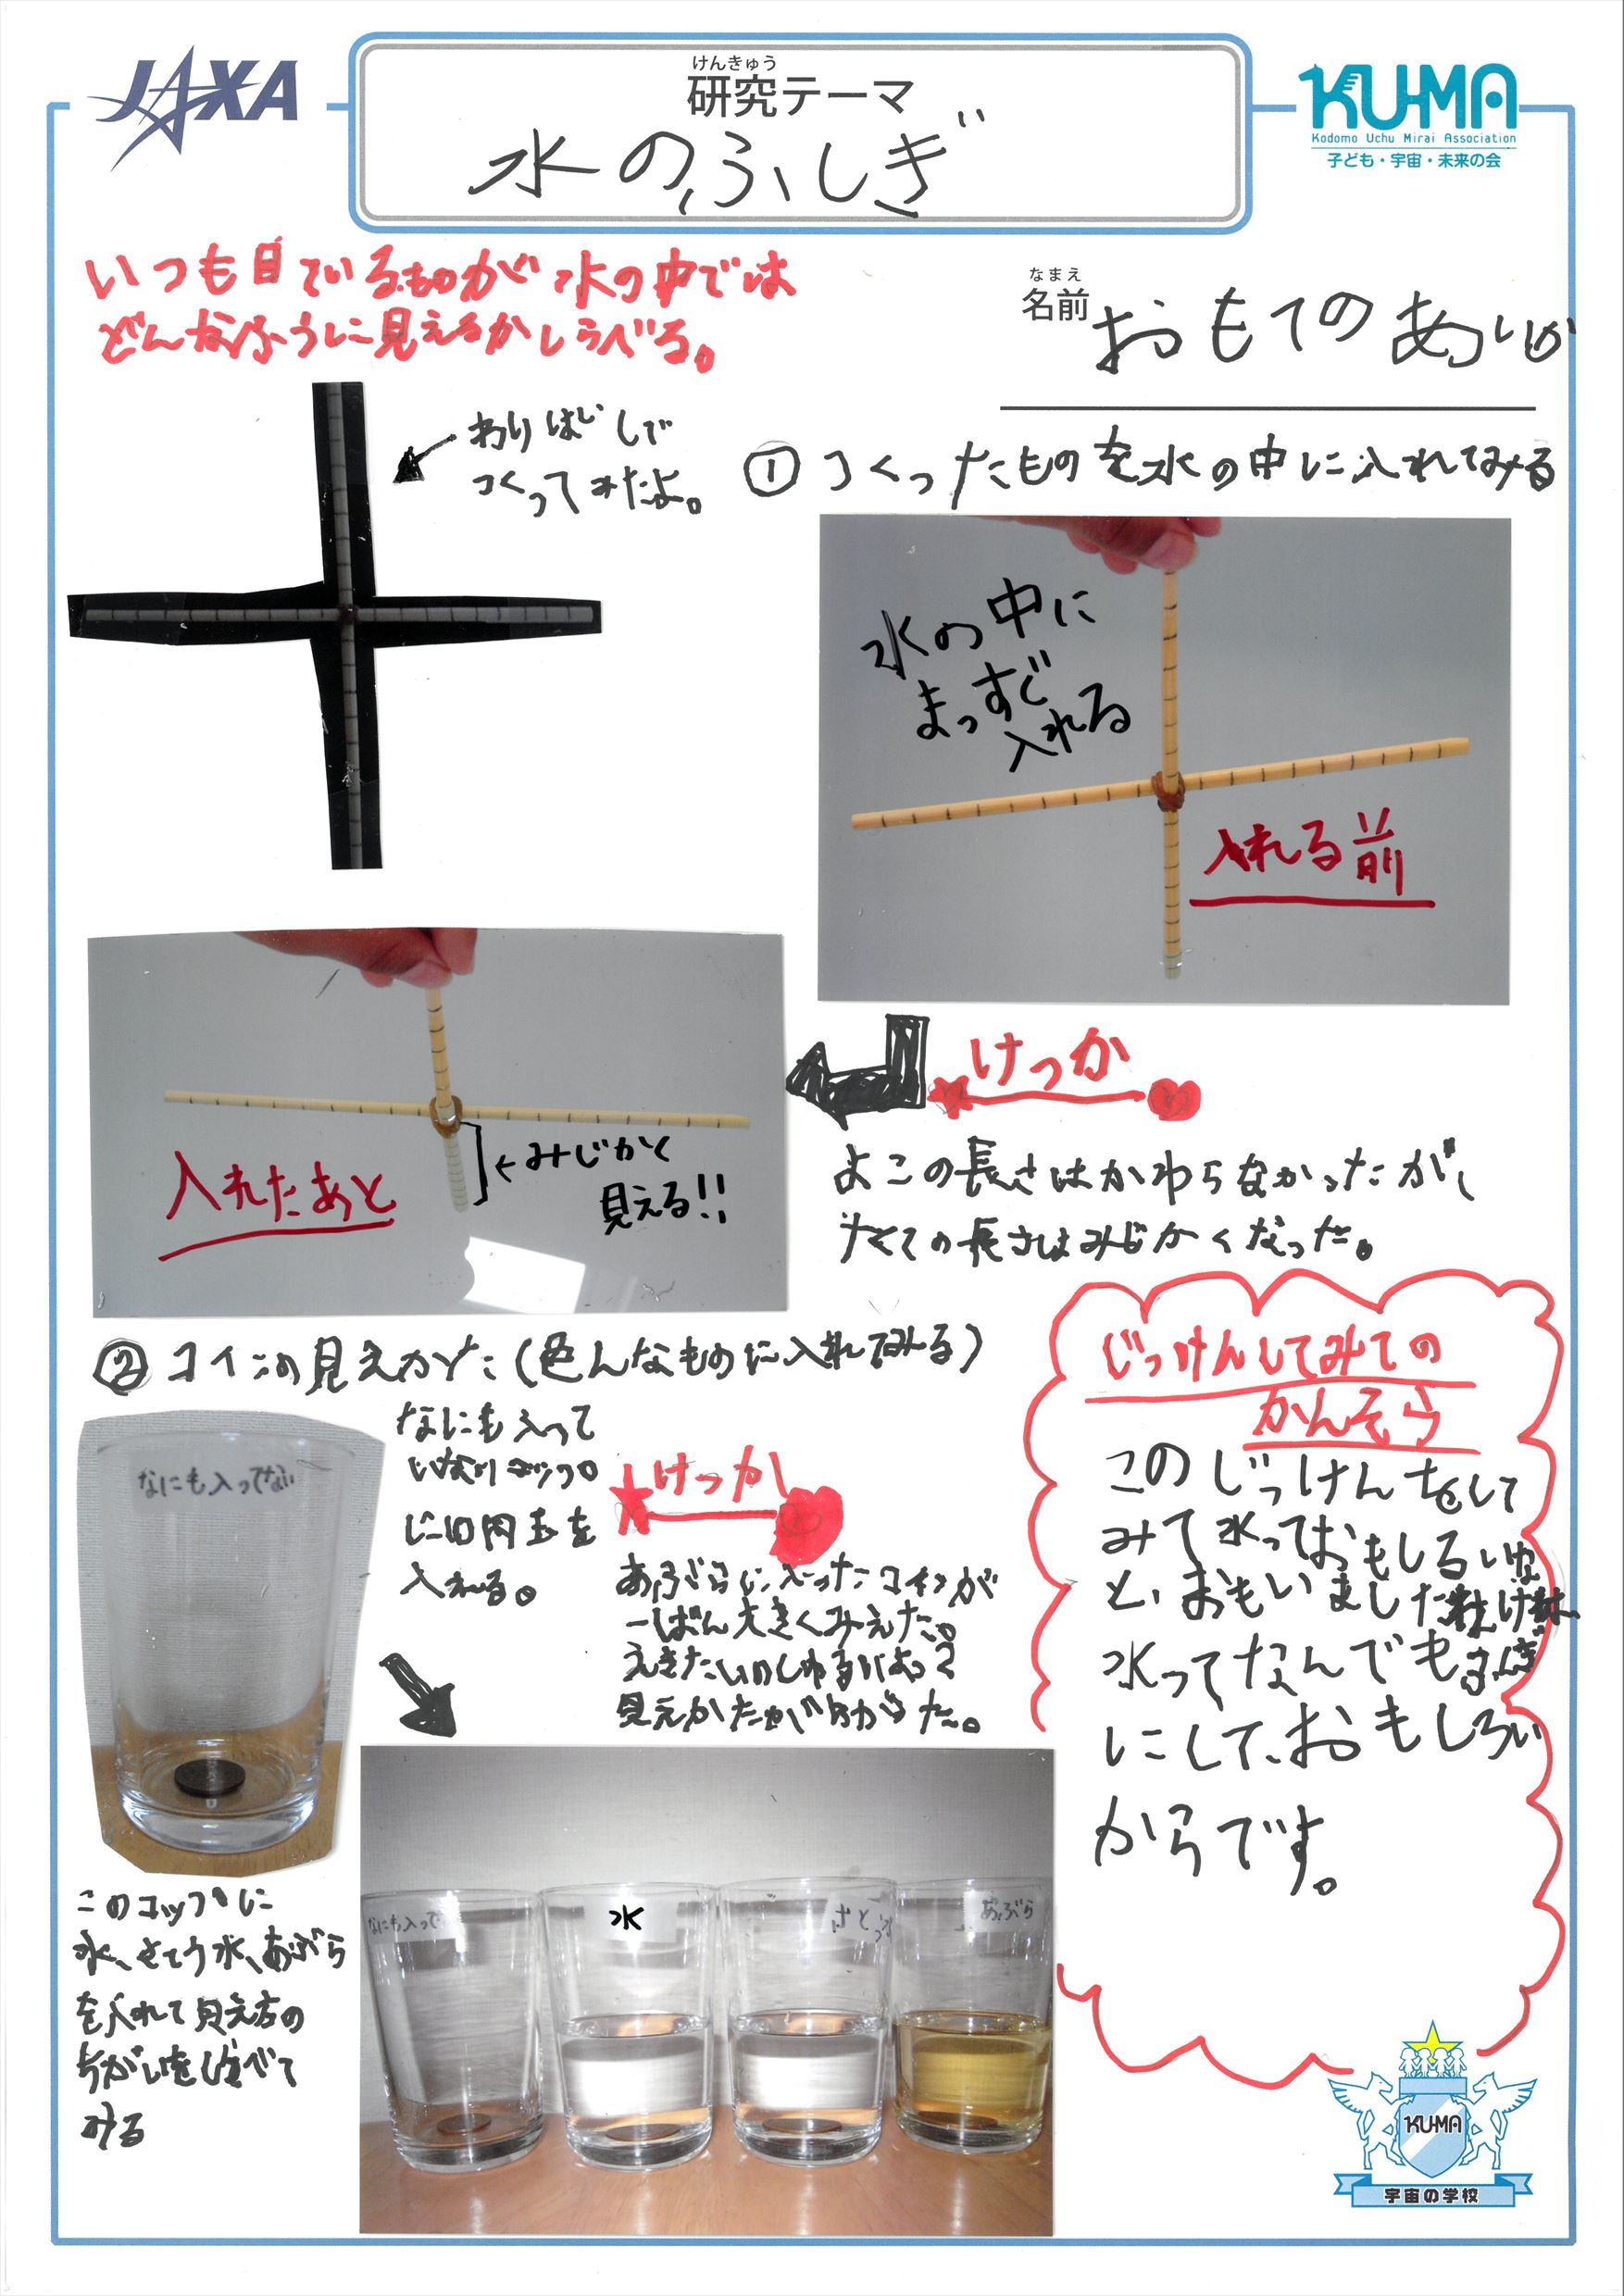 JAXA
けんきゅう
研究テーマ
水のふしぎ
KU-MA
Kodomo Uchu Mirai Association
子ども・宇宙・未来の会
いつも目ているものが水の中では
どんなふうに見えるかしらべる。
なまえ
名前
おもてのあいか
わりばしで
つくってみたよ。
① つくったものを水の中に入れてみる
水の中に
まっすぐ
入れる
入れる前
入れたあと
←みじかく
見える!!
けっか
よこの長さはかわらなかったが、
たての長さはみじかくなった。
② コインの見えかた(色んなものに入れてみる)
なにも入って
いないコップ
に10円玉を
入れる。
なにも入ってない
けっか
あぶらに入ったコインが
一ばん大きくみえた。
えきたいのしゅるいによって
見えかたがちがった。
じっけんしてみての
かんそう
このじっけんをして
みて水っておもしろいな
と、おもいました
水ってなんでも
にして、おもしろい
からです。
このコップに
水、さとう水、あぶら
を入れて見え方の
ちがいをしらべて
みる
なにも入って
水
さとう
あぶら
KU-MA
宇宙の学校